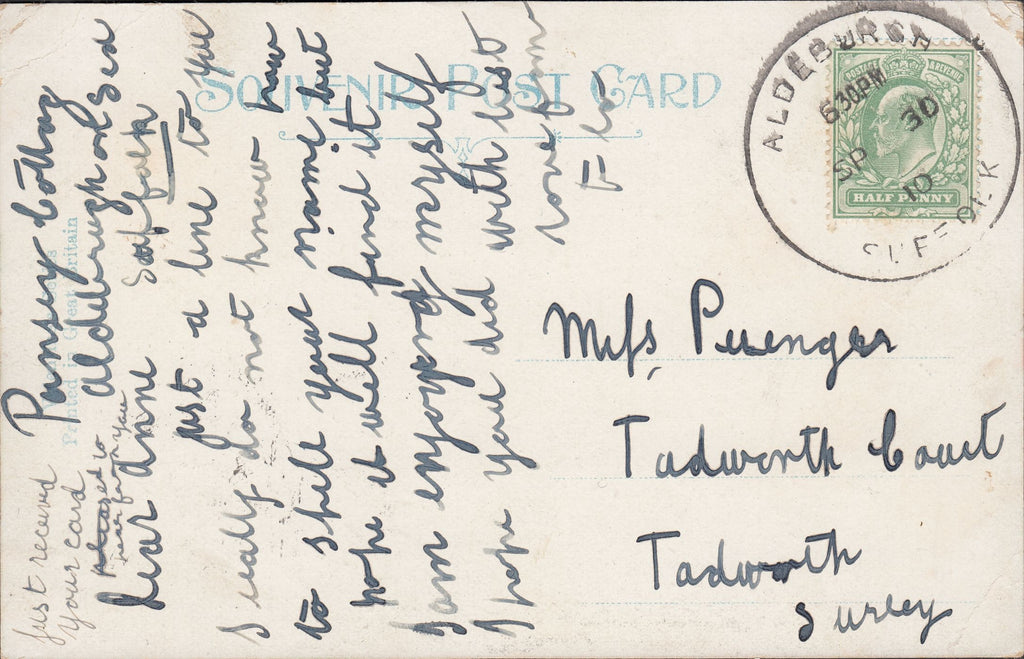 SOUVENIR POST CARD
ALDEBURGH
6.30PM
30
SP
10
SUFFOLK
POSTAGE & REVENUE
HALF PENNY
Miss Puenger
Tadworth Court
Tadworth
Surrey
Printed in Great Britain
Pansey Cottag
Aldeburgh on Sea
Suffolk
Dear Anne
just a line to you
I really do not know how
to spell your name but
hope it will find it
I am enjoying myself
I hope you did with best
love from
just received
your card
pleased to
hear from you